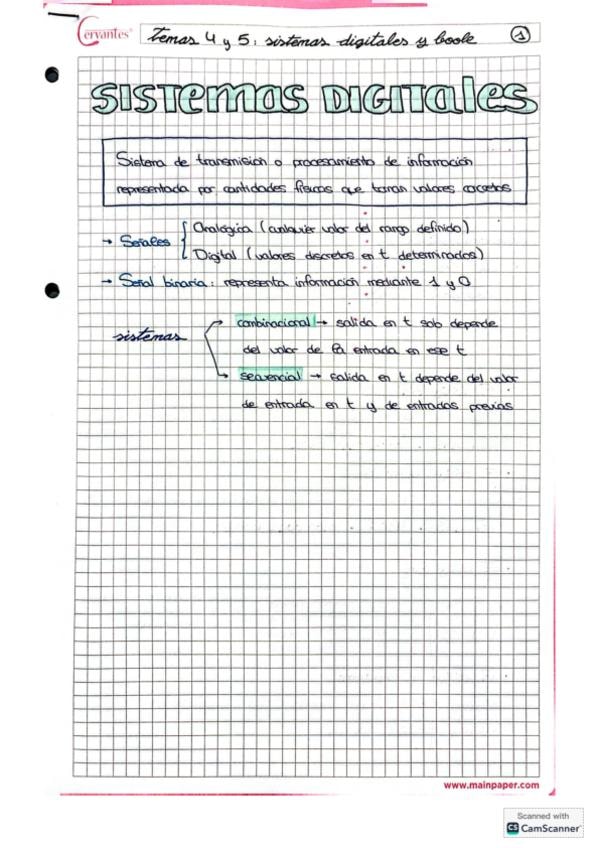 Cervantes® temas 4 y 5: sistemas digitales y boole 1
SISTEMAS DIGITALES
Sistema de transmisión o procesamiento de información
representada por cantidades físicas que toman valores
→ Señales
Analógica (cualquier valor del rango definido)
Digital (valores discretos en t determinados)
→ Señal binaria: representa información mediante 1 y 0
sistemas
combinacional → salida en t solo depende
del valor de la entrada en ese t
secuencial → salida en t depende del valor
de entrada en t y de entradas previas
www.mainpaper.com
Scanned with
CS CamScanner